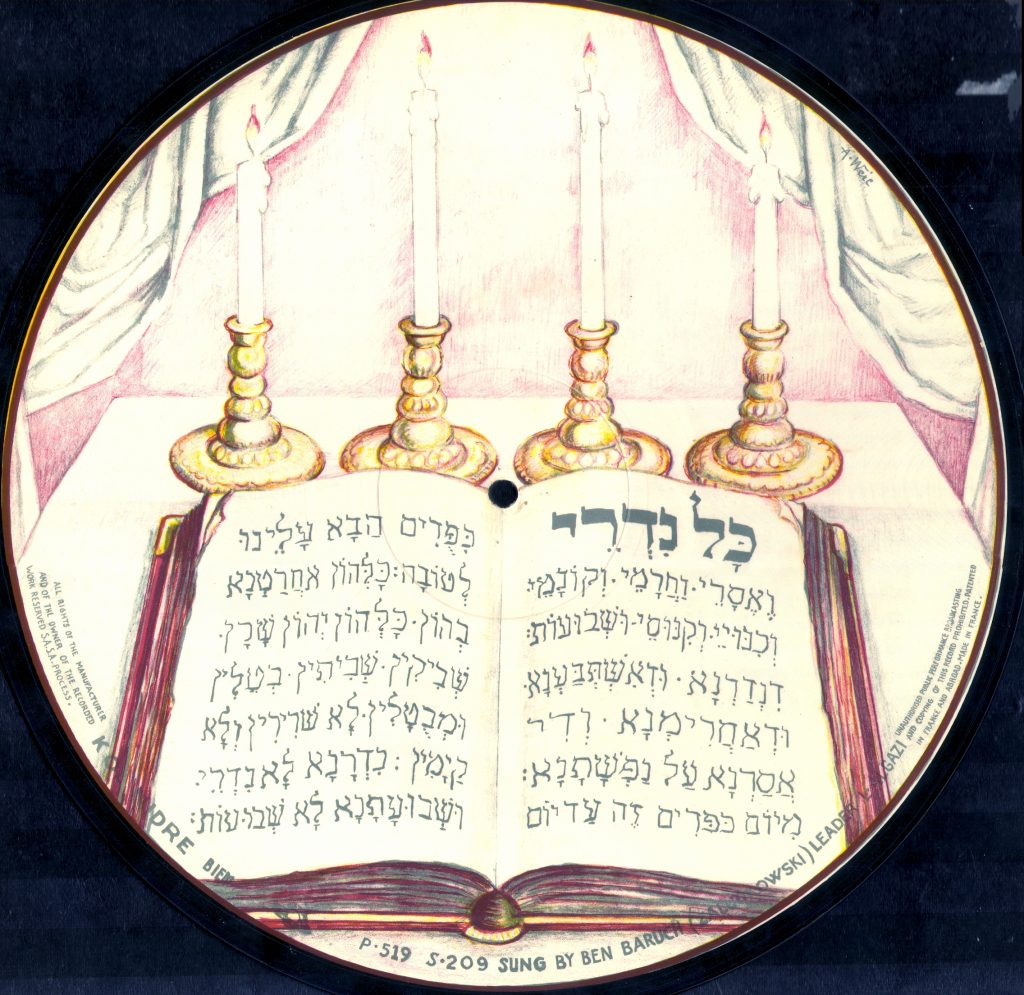 A. Weiss
כָּל נִדְרֵי
וֶאֱסָרֵי · וַחֲרָמֵי · וְקוֹנָמֵי ·
וְכִנּוּיֵי · וְקִנּוּסֵי · וּשְׁבוּעוֹת:
דִנְדַרְנָא · וּדְאִשְׁתְּבַעְנָא
וּדְאַחֲרִימְנָא · וְדִר
אֲסַרְנָא עַל נַפְשָׁתָנָא:
מִיוֹם כִּפֻּרִים זֶה עַד יוֹם
כִּפֻּרִים הַבָּא עָלֵינוּ
לְטוֹבָה: כָּלְּהוֹן אִחֲרַטְנָא
בְהוֹן · כָּלְּהוֹן יְהוֹן שָׁרָן ·
שְׁבִיקִין · שְׁבִיתִין · בְּטֵלִין
וּמְבֻטָּלִין · לָא שְׁרִירִין וְלָא
קַיָּמִין: נִדְרָנָא לָא נִדְרֵי ·
וּשְׁבוּעָתָנָא לָא שְׁבוּעוֹת:
ALL RIGHTS OF THE MANUFACTURER
AND OF THE OWNER OF THE RECORDED
WORK RESERVED S.A.S.A. PROCESS.
UNAUTHORISED PUBLIC PERFORMANCE BROADCASTING
AND COPYING OF THIS RECORD PROHIBITED. PATENTED
IN FRANCE AND ABROAD. MADE IN FRANCE.
P.519 S.209 SUNG BY BEN BARUCH LEADER